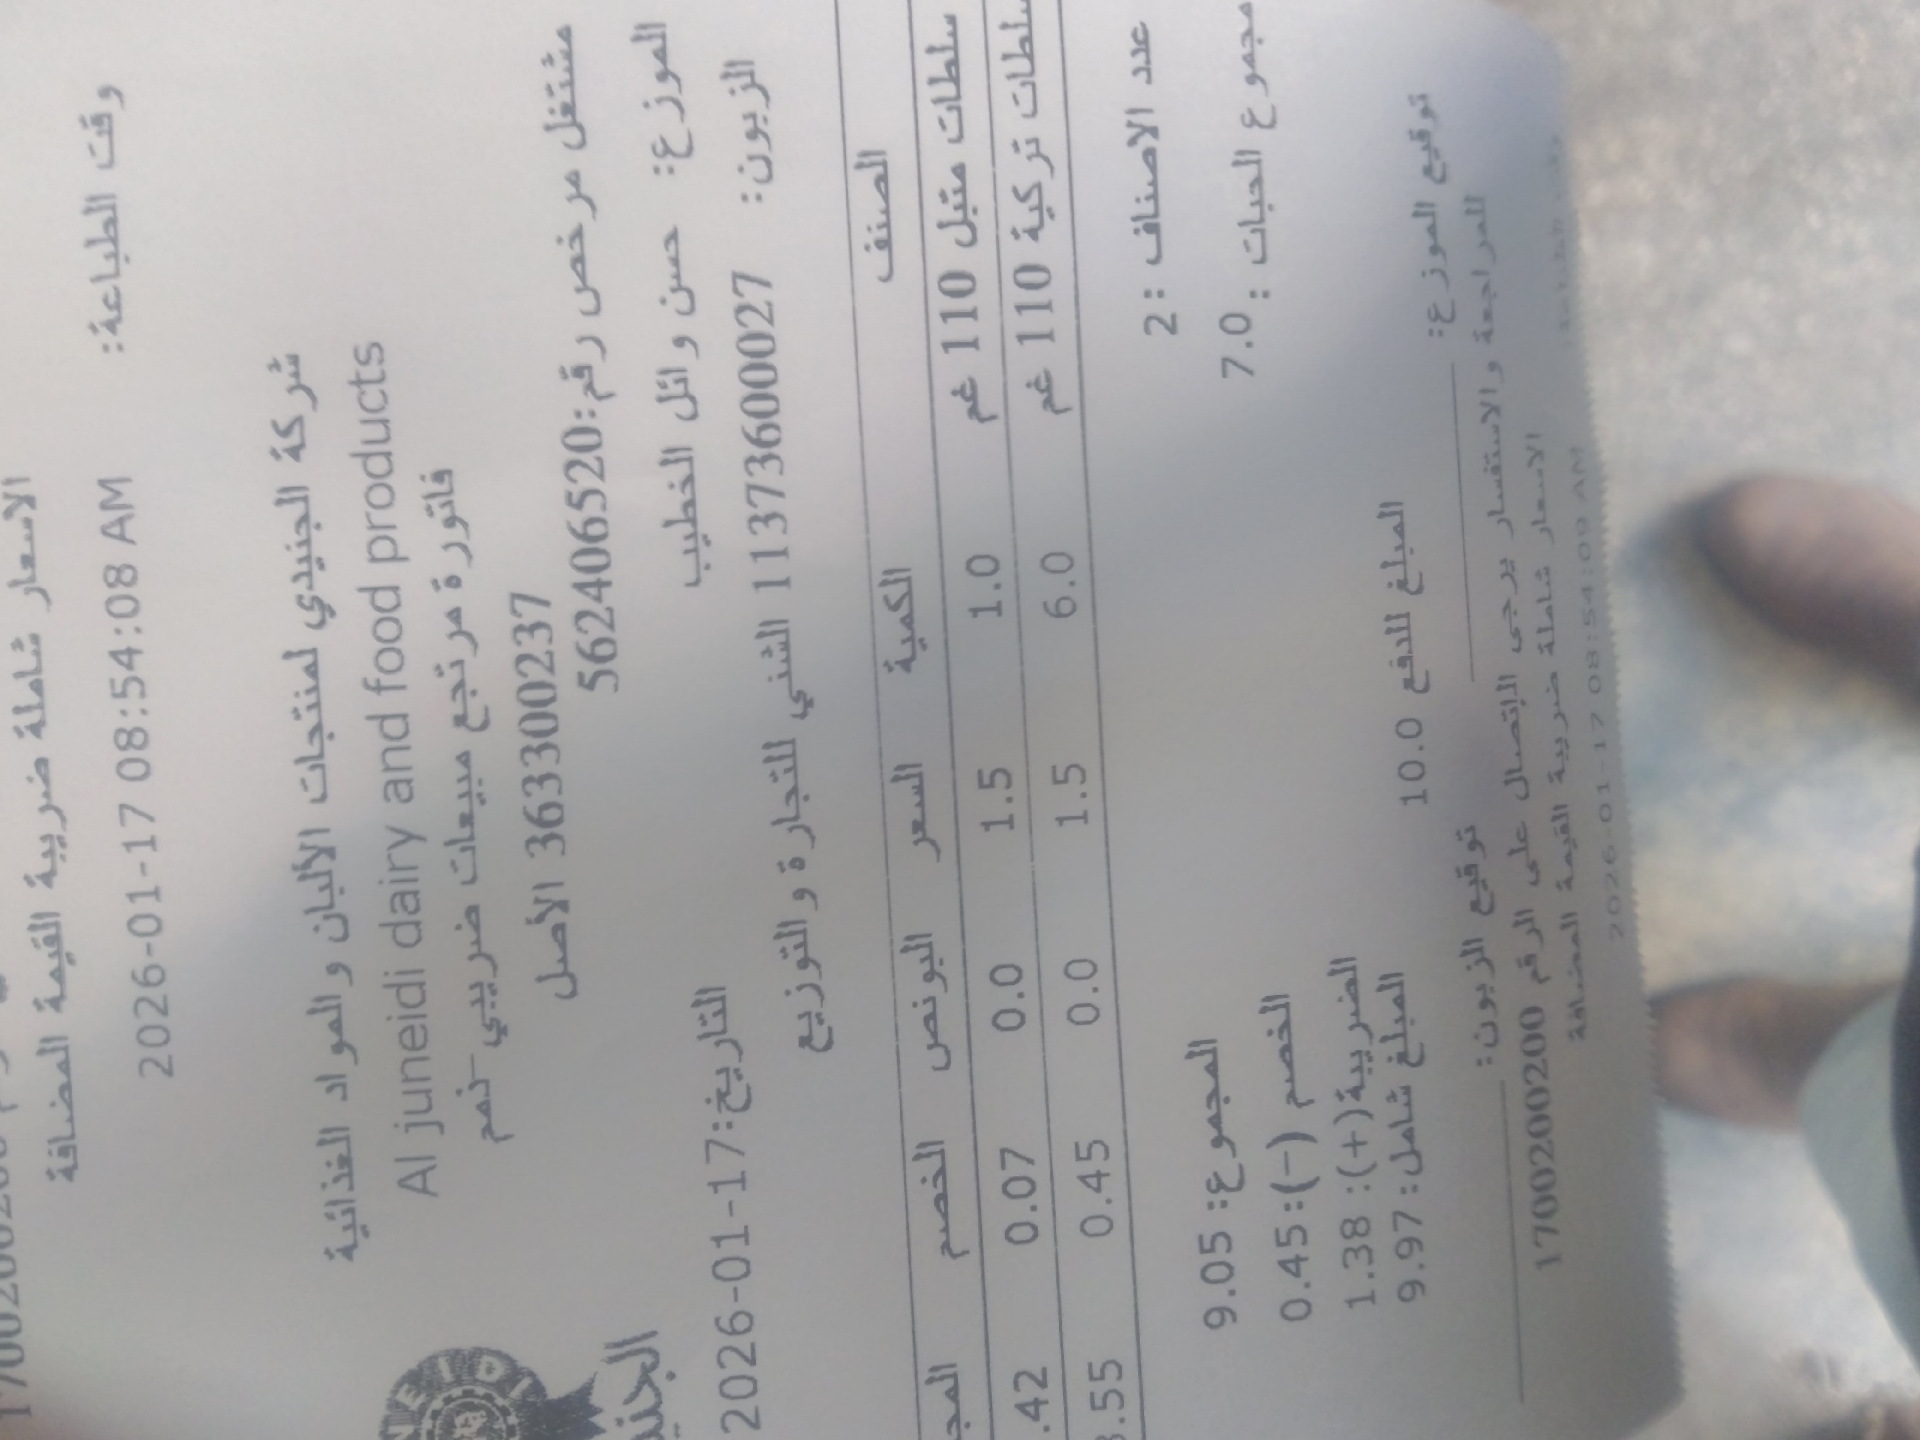 الاسعار شاملة ضريبة القيمة المضافة
وقت الطباعة: 2026-01-17 08:54:08 AM
شركة الجنيدي لمنتجات الألبان والمواد الغذائية
Al juneidi dairy and food products
فاتورة مرتجع مبيعات ضريبي-نمم
363300237 الأصل
مشتغل مرخص رقم:562406520
الموزع: حسن وائل الخطيب
التاريخ:2026-01-17
الزبون: 1137360027 الشني للتجارة والتوزيع
الصنف الكمية السعر البونص الخصم
سلطات متبل 110 غم 1.0 1.5 0.0 0.07 .42
سلطات تركية 110 غم 6.0 1.5 0.0 0.45 .55
عدد الاصناف :2
مجموع الحبات : 7.0 المجموع: 9.05
الخصم (-): 0.45
الضريبة(+): 1.38
المبلغ للدفع 10.0 المبلغ شامل: 9.97
توقيع الموزع: توقيع الزبون:
للمراجعة والاستفسار يرجى الإتصال على الرقم 1700200200
الاسعار شاملة ضريبة القيمة المضافة
2026-01-17 08:54:09 AM